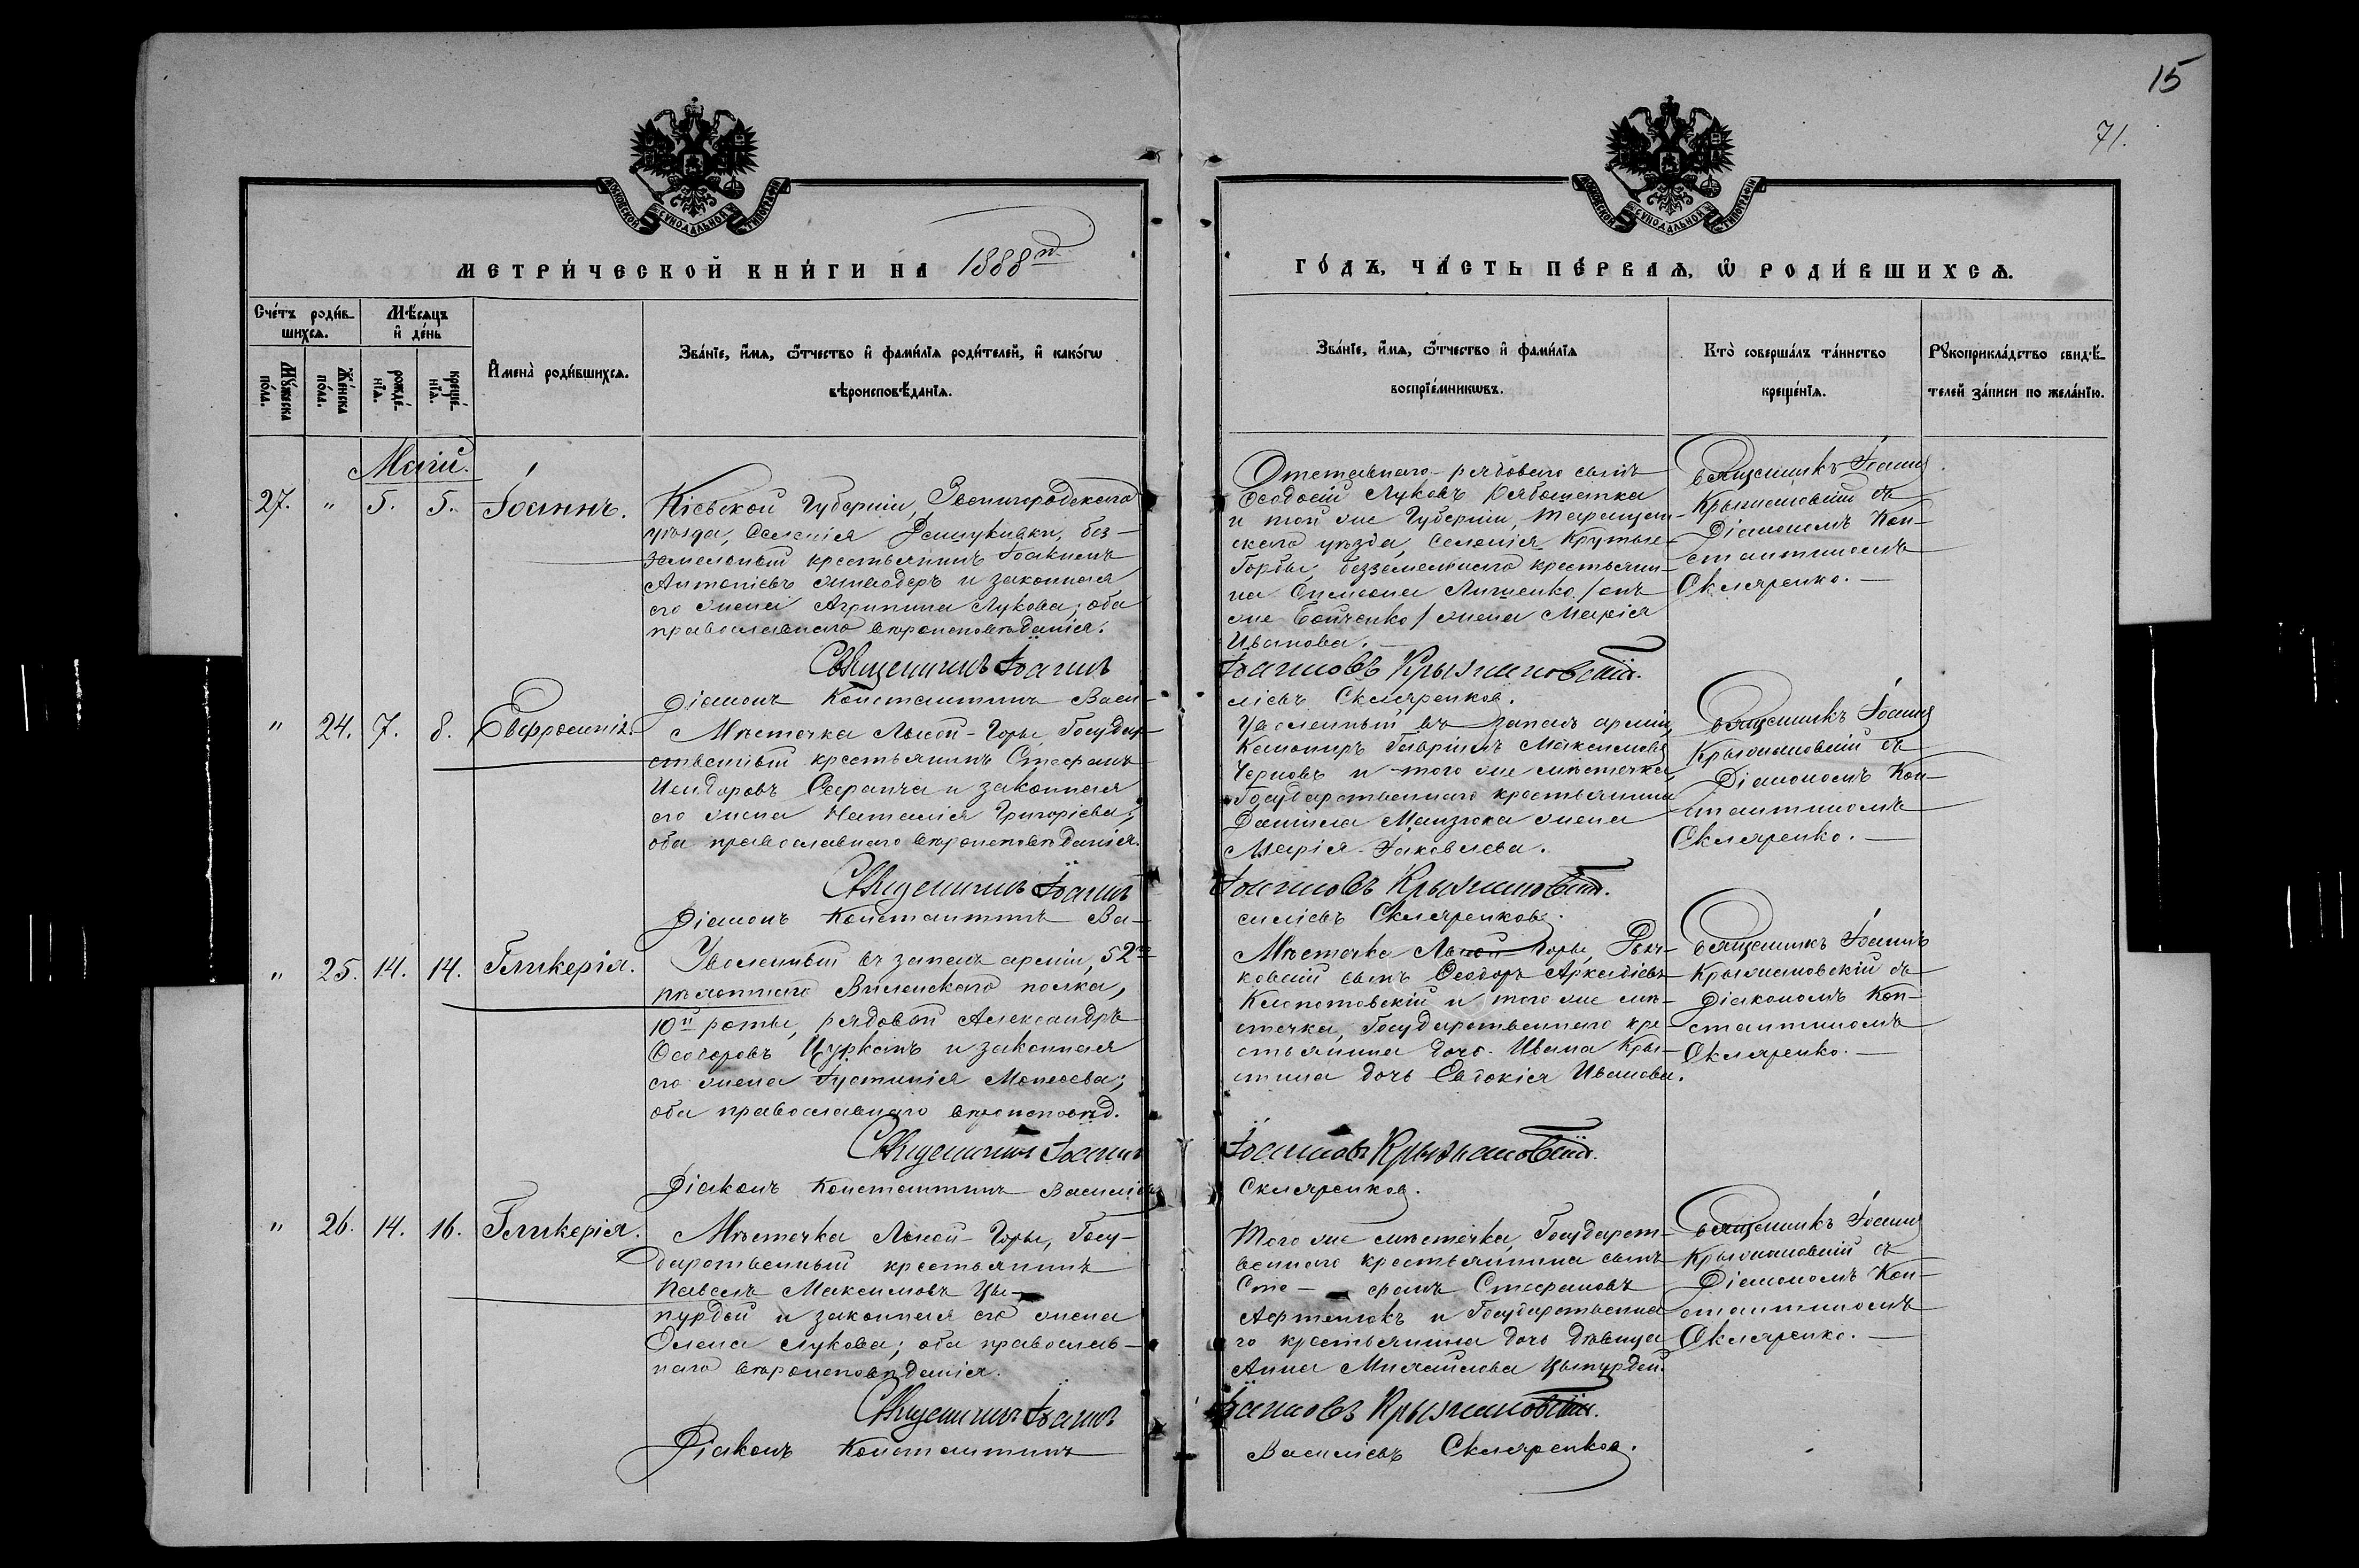 15
71.
МОСКОВСКОЙ СѴНОДАЛЬНОЙ ТИПОГРАФІИ
МОСКОВСКОЙ СѴНОДАЛЬНОЙ ТИПОГРАФІИ
МЕТРИ́ЧЕСКОЙ КНИ́ГИ НА 1888й
ГО́ДЪ, ЧА́СТЬ ПЕ́РВАѦ, Ѡ҆ РОДИ́ВШИХСѦ.
Сче́тъ роди́в-
шихсѧ.
Мѣ́сѧцъ
и҆ де́нь
Мꙋ́жеска
по́ла.
Же́нска
по́ла.
рожде́-
нїѧ.
креще́-
нїѧ.
И҆мена̀ роди́вшихсѧ.
Зва́нїе, и҆́мѧ, ѻ҆́тчество и҆ фами́лїѧ роди́телей, и҆ како́гѡ
вѣроисповѣ́данїѧ.
Зва́нїе, и҆́мѧ, ѻ҆́тчество и҆ фами́лїѧ
воспрїе́мникѡвъ.
Кто̀ соверша́лъ та́инство
креще́нїѧ.
Рꙋкоприкла́дство свидѣ́-
телей за́писи по жела́нїю.
Маій.
27. " 5. 5. Іоаннъ.
Кіевской Губерніи, Звенигородскаго
уѣзда, Селенія , без-
земельный крестьянинъ Іоакимъ
Антоніевъ и законная
его жена Агрипина Лукова; оба
православнаго вѣроисповѣданія.
Священникъ Іоаннъ
Діаконъ Константинъ Васи-
Отставнаго рядоваго сынъ
Ѳеодосій Луковъ
и той же Губерніи, Таращан-
скаго уѣзда, Селенія Крутые-
Горбы, безземельнаго крестьяни-
на Симеона /онъ
же Бойченко/ жена Марія
Иванова.
Іоанновъ Крыжановскій.
ліевъ Скляренков.
Священникъ Іоаннъ
Крыжановскій съ
Діакономъ Кон-
стантиномъ
Скляренко.
" 24. 7. 8. Евфросинія.
Мѣстечка Лысой-Горы, Государ-
ственный крестьянинъ Стефанъ
Исидоровъ и законная
его жена Наталія Григоріева;
оба православнаго вѣроисповѣданія.
Священникъ Іоаннъ
Діаконъ Константинъ Ва-
Уволенный въ запасъ арміи,
Канониръ Гавріилъ Максимовъ
Черновъ и того же мѣстечка,
Государственнаго крестьянина
Даніила Манзюка жена
Марія Іаковлева.
Іоанновъ Крыжановскій.
силіевъ Скляренков.
Священникъ Іоаннъ
Крыжановскій съ
Діакономъ Кон-
стантиномъ
Скляренко.
" 25. 14. 14. Гликерія.
Уволенный въ запасъ арміи, 52го
пѣхотнаго Виленскаго полка,
10й роты, рядовой Александръ
Ѳеодоровъ Цурканъ и законная
его жена Іустинія Моисеева;
оба православнаго вѣроисповѣд.
Священникъ Іоаннъ
Діаконъ Константинъ Василіевъ
Мѣстечка Лысой Горы,
сынъ Ѳеодоръ Аркадіевъ
Клопотовскій и того же мѣ-
стечка, Государственнаго кре-
стьянина Ивана
дочь Евдокія Иванова.
Іоанновъ Крыжановскій.
Скляренков.
Священникъ Іоаннъ
Крыжановскій съ
Діакономъ Кон-
стантиномъ
Скляренко.
" 26. 14. 16. Гликерія.
Мѣстечка Лысой-Горы, Госу-
дарственный крестьянинъ
Павелъ Максимовъ Цы-
пурдей и законная его жена
Олена Лукова; оба православ-
наго вѣроисповѣданія.
Священникъ Іоаннъ
Діаконъ Константинъ
Того же мѣстечка, Государст-
веннаго крестьянина сынъ
Сте- фанъ Стефановъ
и Государственна
го крестьянина дочь дѣвица
Анна Михайлова Цыпурдей.
Іоанновъ Крыжановскій.
Василіевъ Скляренков.
Священникъ Іоаннъ
Крыжановскій съ
Діакономъ Кон-
стантиномъ
Скляренко.